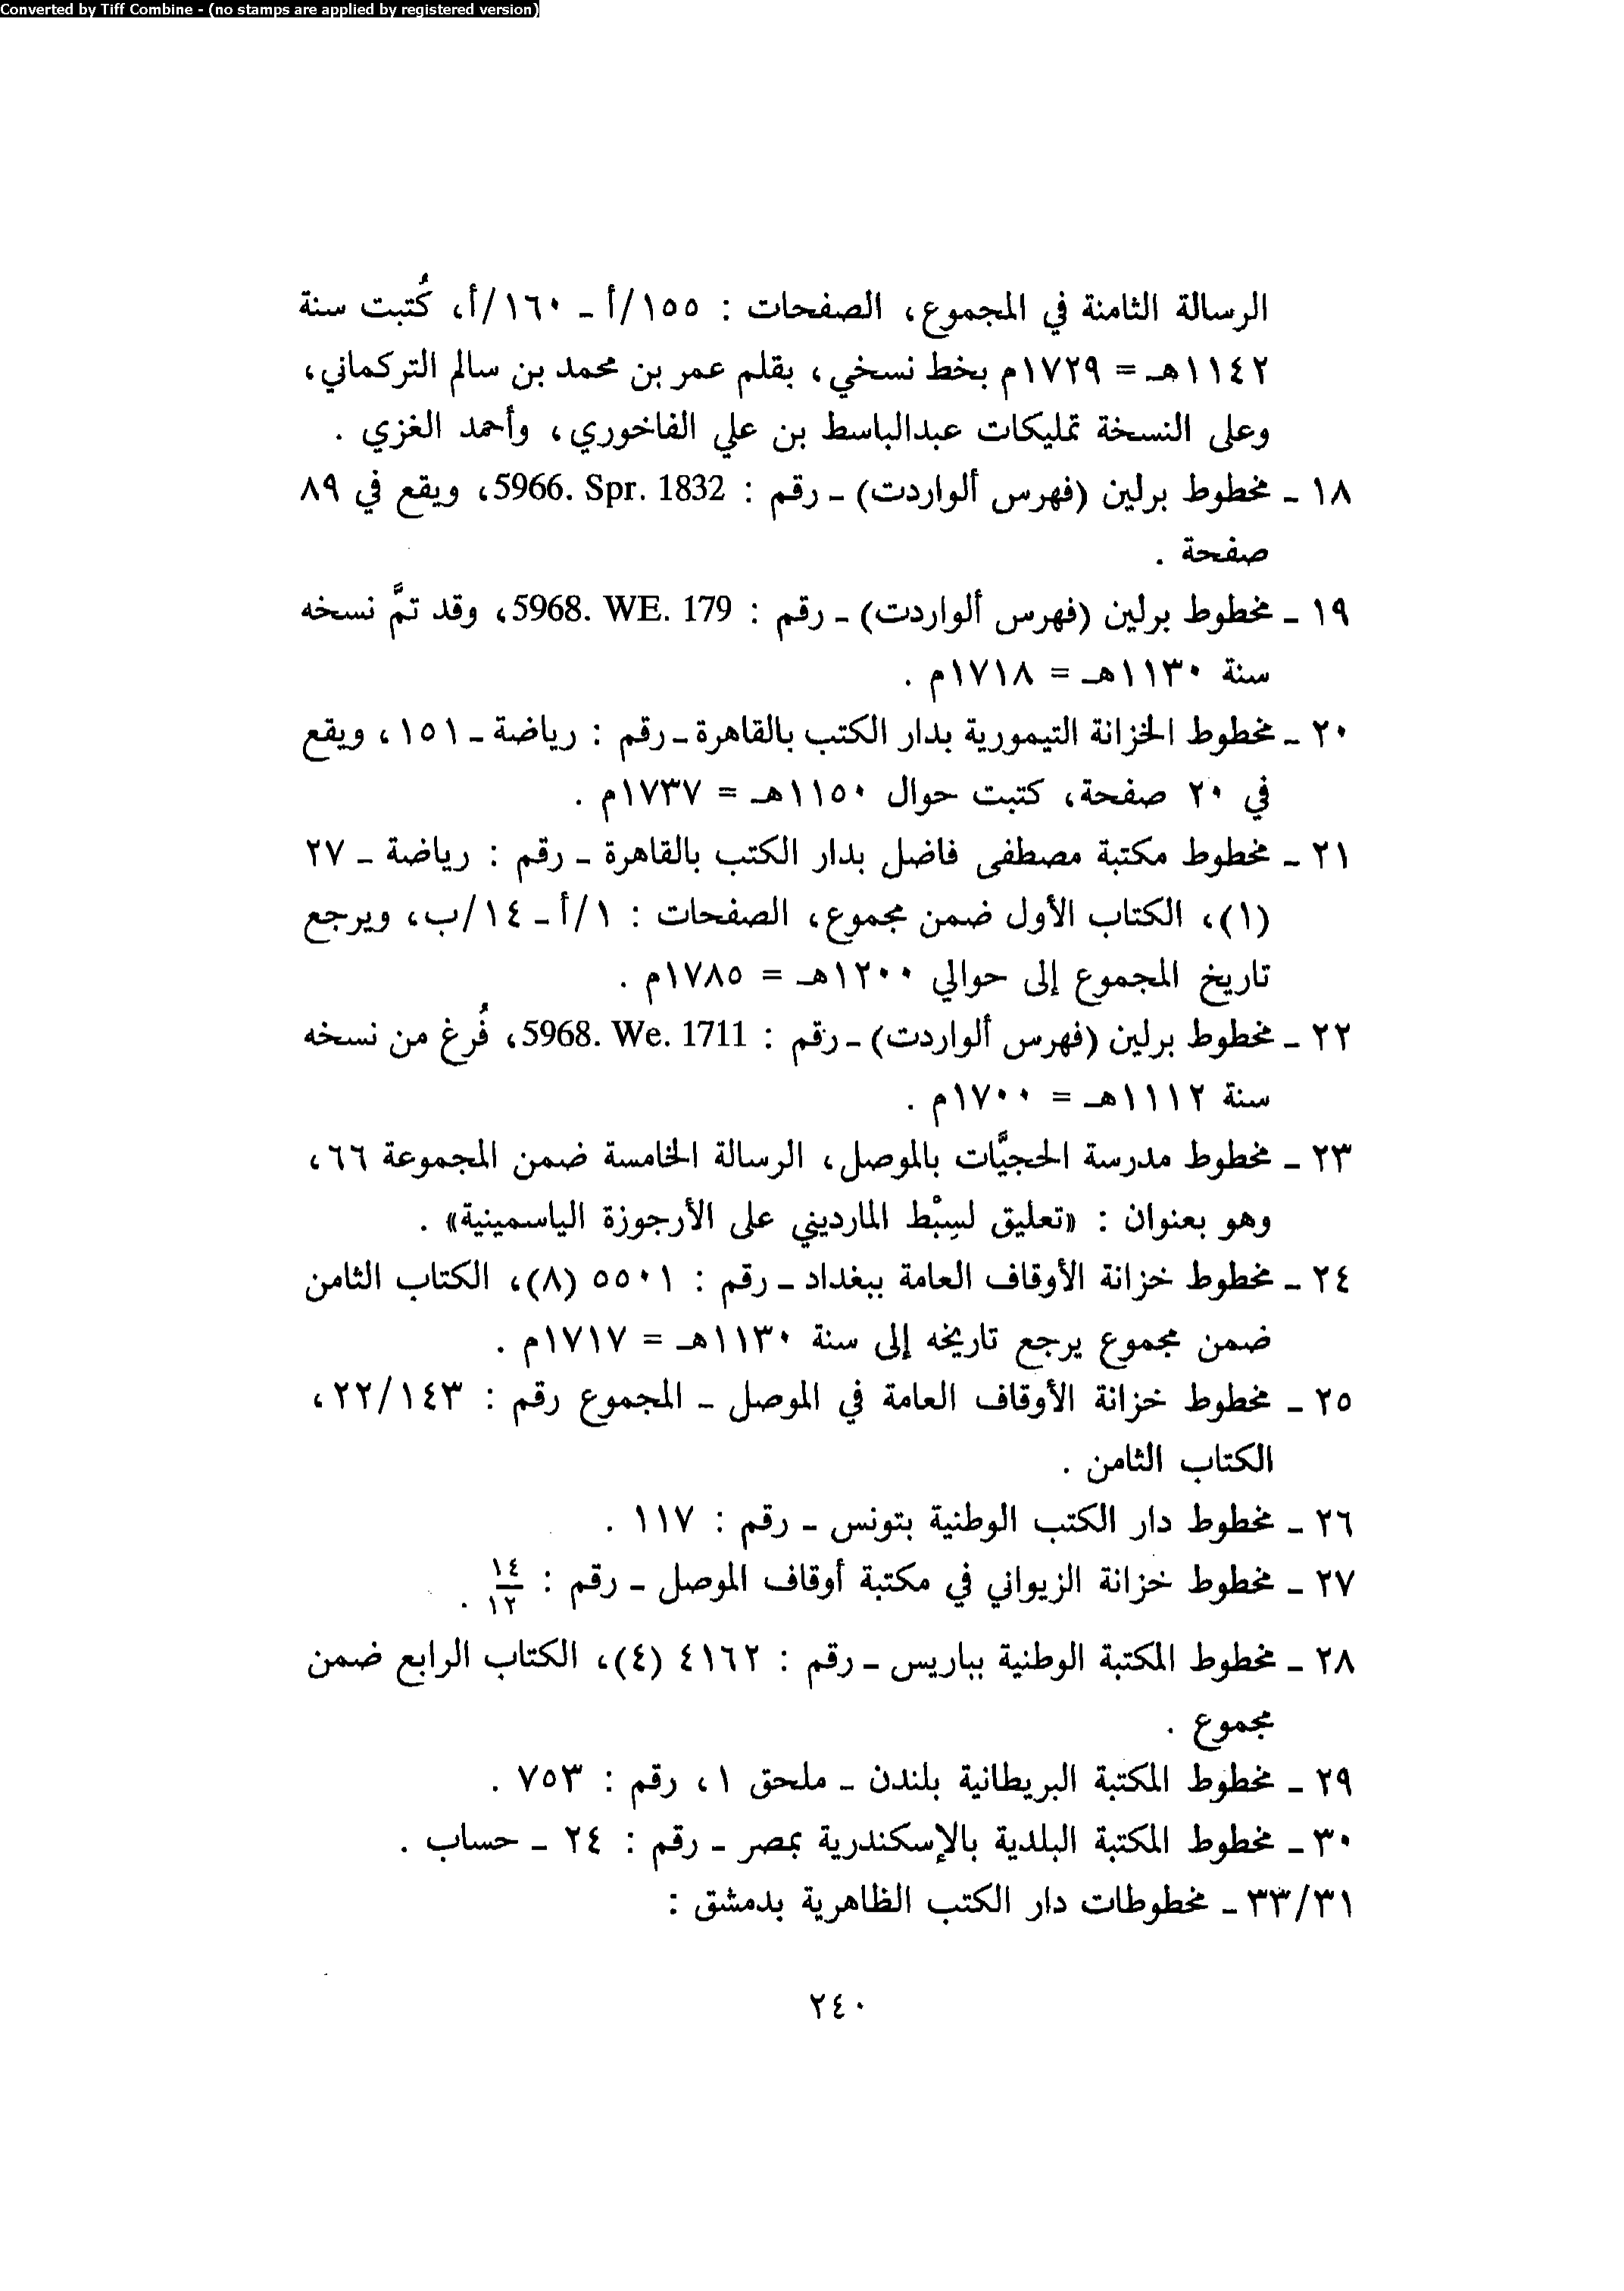 Converted by Tiff Combine - (no stamps are applied by registered version)
الرسالة الثامنة في المجموع، الصفحات : ١٥٥/أ ـ ١٦٠/أ، كُتبت سنة
١١٤٢هـ = ١٧٢٩م بخط نسخي، بقلم عمر بن محمد بن سالم التركماني،
وعلى النسخة تمليكات عبدالباسط بن علي الفاخوري، وأحمد الغزي .
١٨ ـ مخطوط برلين (فهرس ألواردت) ـ رقم : 5966. Spr. 1832، ويقع في ٨٩
صفحة .
١٩ ـ مخطوط برلين (فهرس ألواردت) ـ رقم : 5968. WE. 179، وقد تمَّ نسخه
سنة ١١٣٠هـ = ١٧١٨م .
٢٠ ـ مخطوط الخزانة التيمورية بدار الكتب بالقاهرة ـ رقم : رياضة ـ ١٥١، ويقع
في ٢٠ صفحة، كتبت حوال ١١٥٠هـ = ١٧٣٧م .
٢١ ـ مخطوط مكتبة مصطفى فاضل بدار الكتب بالقاهرة ـ رقم : رياضة ـ ٢٧
(١)، الكتاب الأول ضمن مجموع، الصفحات : ١/أ ـ ١٤/ب، ويرجع
تاريخ المجموع إلى حوالي ١٢٠٠هـ = ١٧٨٥م .
٢٢ ـ مخطوط برلين (فهرس ألواردت) ـ رقم : 5968. We. 1711، فُرغ من نسخه
سنة ١١١٢هـ = ١٧٠٠م .
٢٣ ـ مخطوط مدرسة الحجيَّات بالموصل، الرسالة الخامسة ضمن المجموعة ٦٦،
وهو بعنوان : «تعليق لسِبْط المارديني على الأرجوزة الياسمينية» .
٢٤ ـ مخطوط خزانة الأوقاف العامة ببغداد ـ رقم : ٥٥٠١ (٨)، الكتاب الثامن
ضمن مجموع يرجع تاريخه إلى سنة ١١٣٠هـ = ١٧١٧م .
٢٥ ـ مخطوط خزانة الأوقاف العامة في الموصل ـ المجموع رقم : ٢٢/١٤٣،
الكتاب الثامن .
٢٦ ـ مخطوط دار الكتب الوطنية بتونس ـ رقم : ١١٧ .
٢٧ ـ مخطوط خزانة الزيواني في مكتبة أوقاف الموصل ـ رقم : ١٤/١٢ .
٢٨ ـ مخطوط المكتبة الوطنية بباريس ـ رقم : ٤١٦٢ (٤)، الكتاب الرابع ضمن
مجموع .
٢٩ ـ مخطوط المكتبة البريطانية بلندن ـ ملحق ١، رقم : ٧٥٣ .
٣٠ ـ مخطوط المكتبة البلدية بالإسكندرية بمصر ـ رقم : ٢٤ ـ حساب .
٣٣/٣١ ـ مخطوطات دار الكتب الظاهرية بدمشق :
٢٤٠